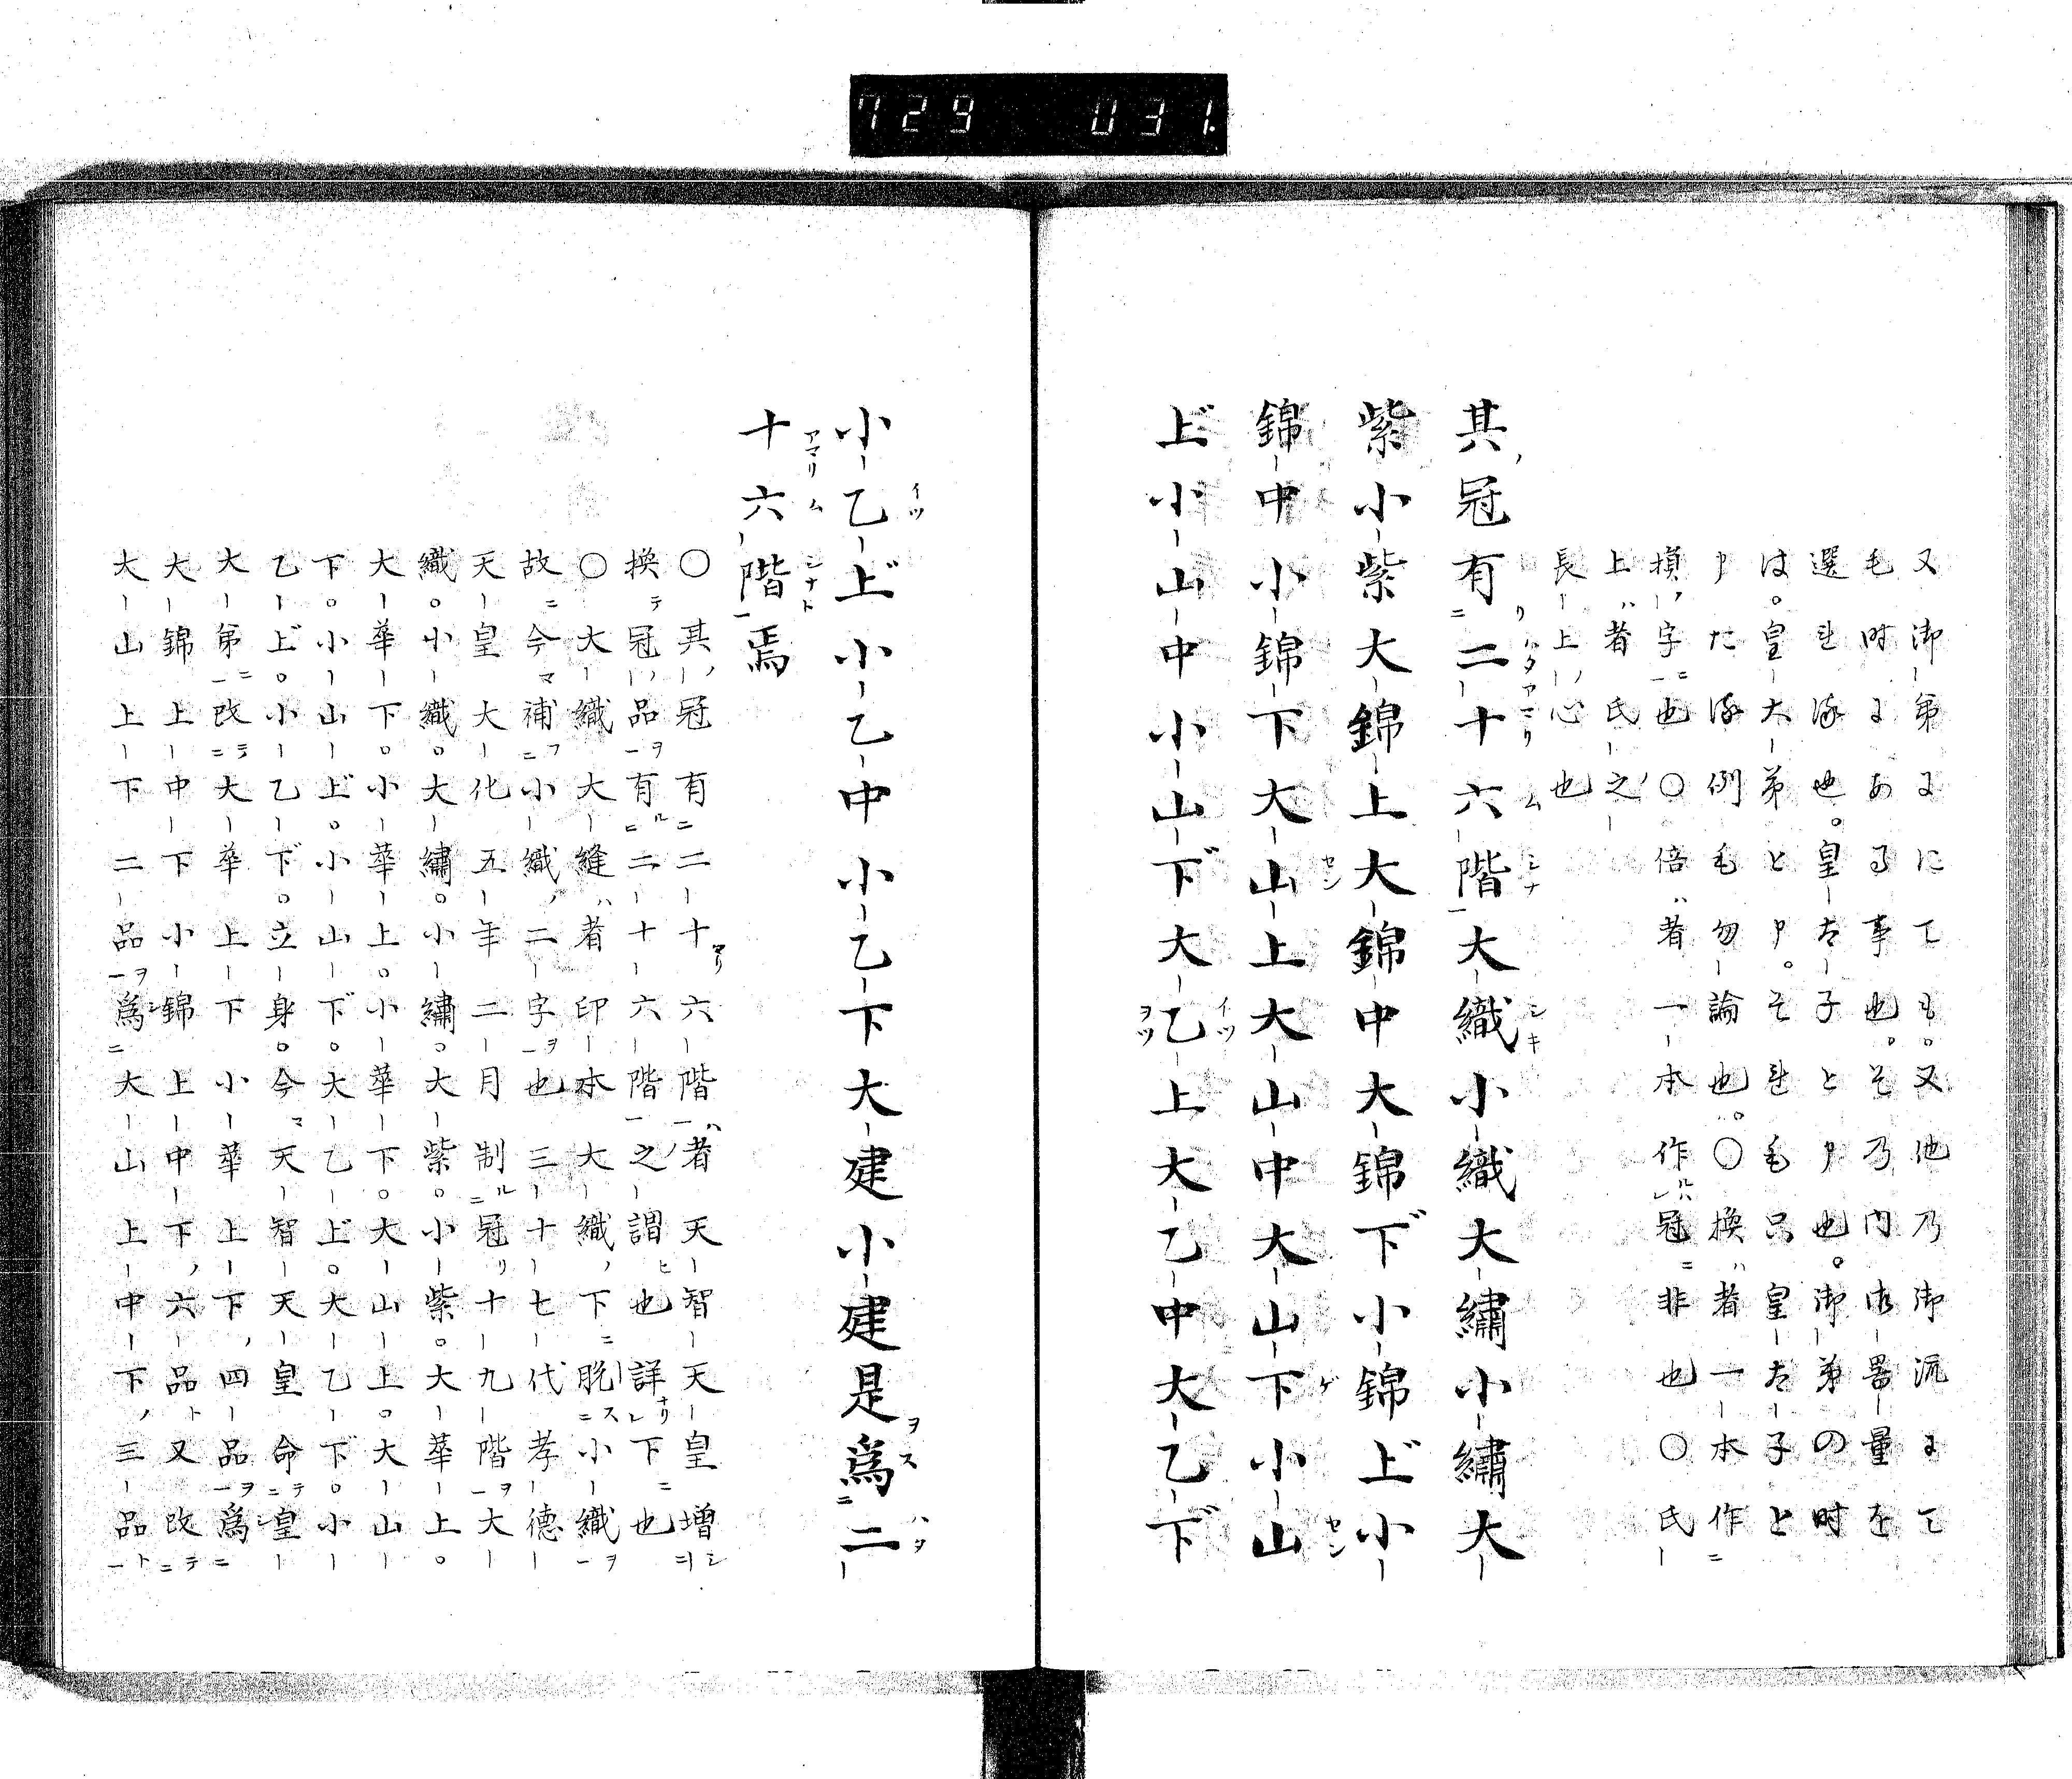 729 031.
又御第にても。又他乃御流にて
も時にある事也。そ乃内御器量を
選ミ除也。皇太子と申也。御弟の時
は。皇大弟と申。それも只皇太子と
申た除例も勿論也。〇換者一本作
損字也〇倍者一本作冠非也〇氏
上者氏之
長上心也
其冠有二十六階大織小織大繡小繡大
紫小紫大錦上大錦中大錦下小錦上小
錦中小錦下大山上大山中大山下小山
上小山中小山下大乙上大乙中大乙下
小乙上小乙中小乙下大建小建是為二
十六階焉
〇其冠有二十六階者天智天皇増
換冠品有二十六階之謂也詳下也
〇大織大縫者印本大織下脱小織
故今補小織二字也三十七代孝徳
天皇大化五年二月制冠十九階大
織。小織。大繡。小繡。大紫。小紫。大華上。
大華下。小華上。小華下。大山上。大山
下。小山上。小山下。大乙上。大乙下。小
乙上。小乙下。立身。今天智天皇命皇
大第改大華上下小華上下四品為
大錦上中下小錦上中下六品又改
大山上下二品為大山上中下三品